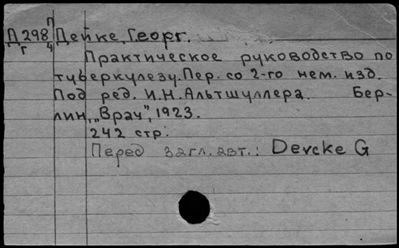 П
Д 298 Дейке, Георг.
г ч
Практическое руководство по
туберкулезу. Пер. со 2-го нем. изд.
Под ред. И.Н. Альтшуллера. Бер-
лин, „Врач", 1923.
242 стр.
Перед загл. авт.: Deycke G